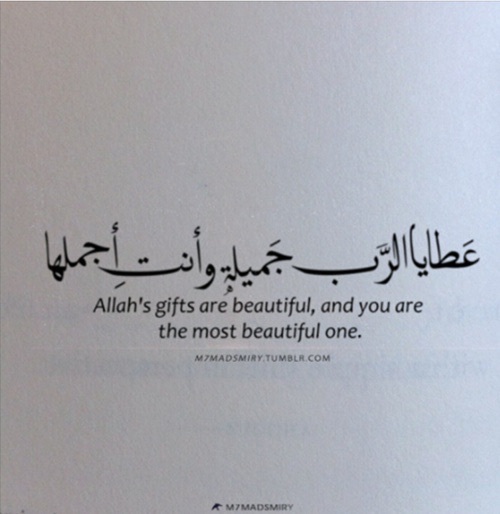 عَطايا الرَّب جَميلةٍ وأنتِ أجملها
Allah's gifts are beautiful, and you are
the most beautiful one.
M7MADSMIRY.TUMBLR.COM
M7MADSMIRY